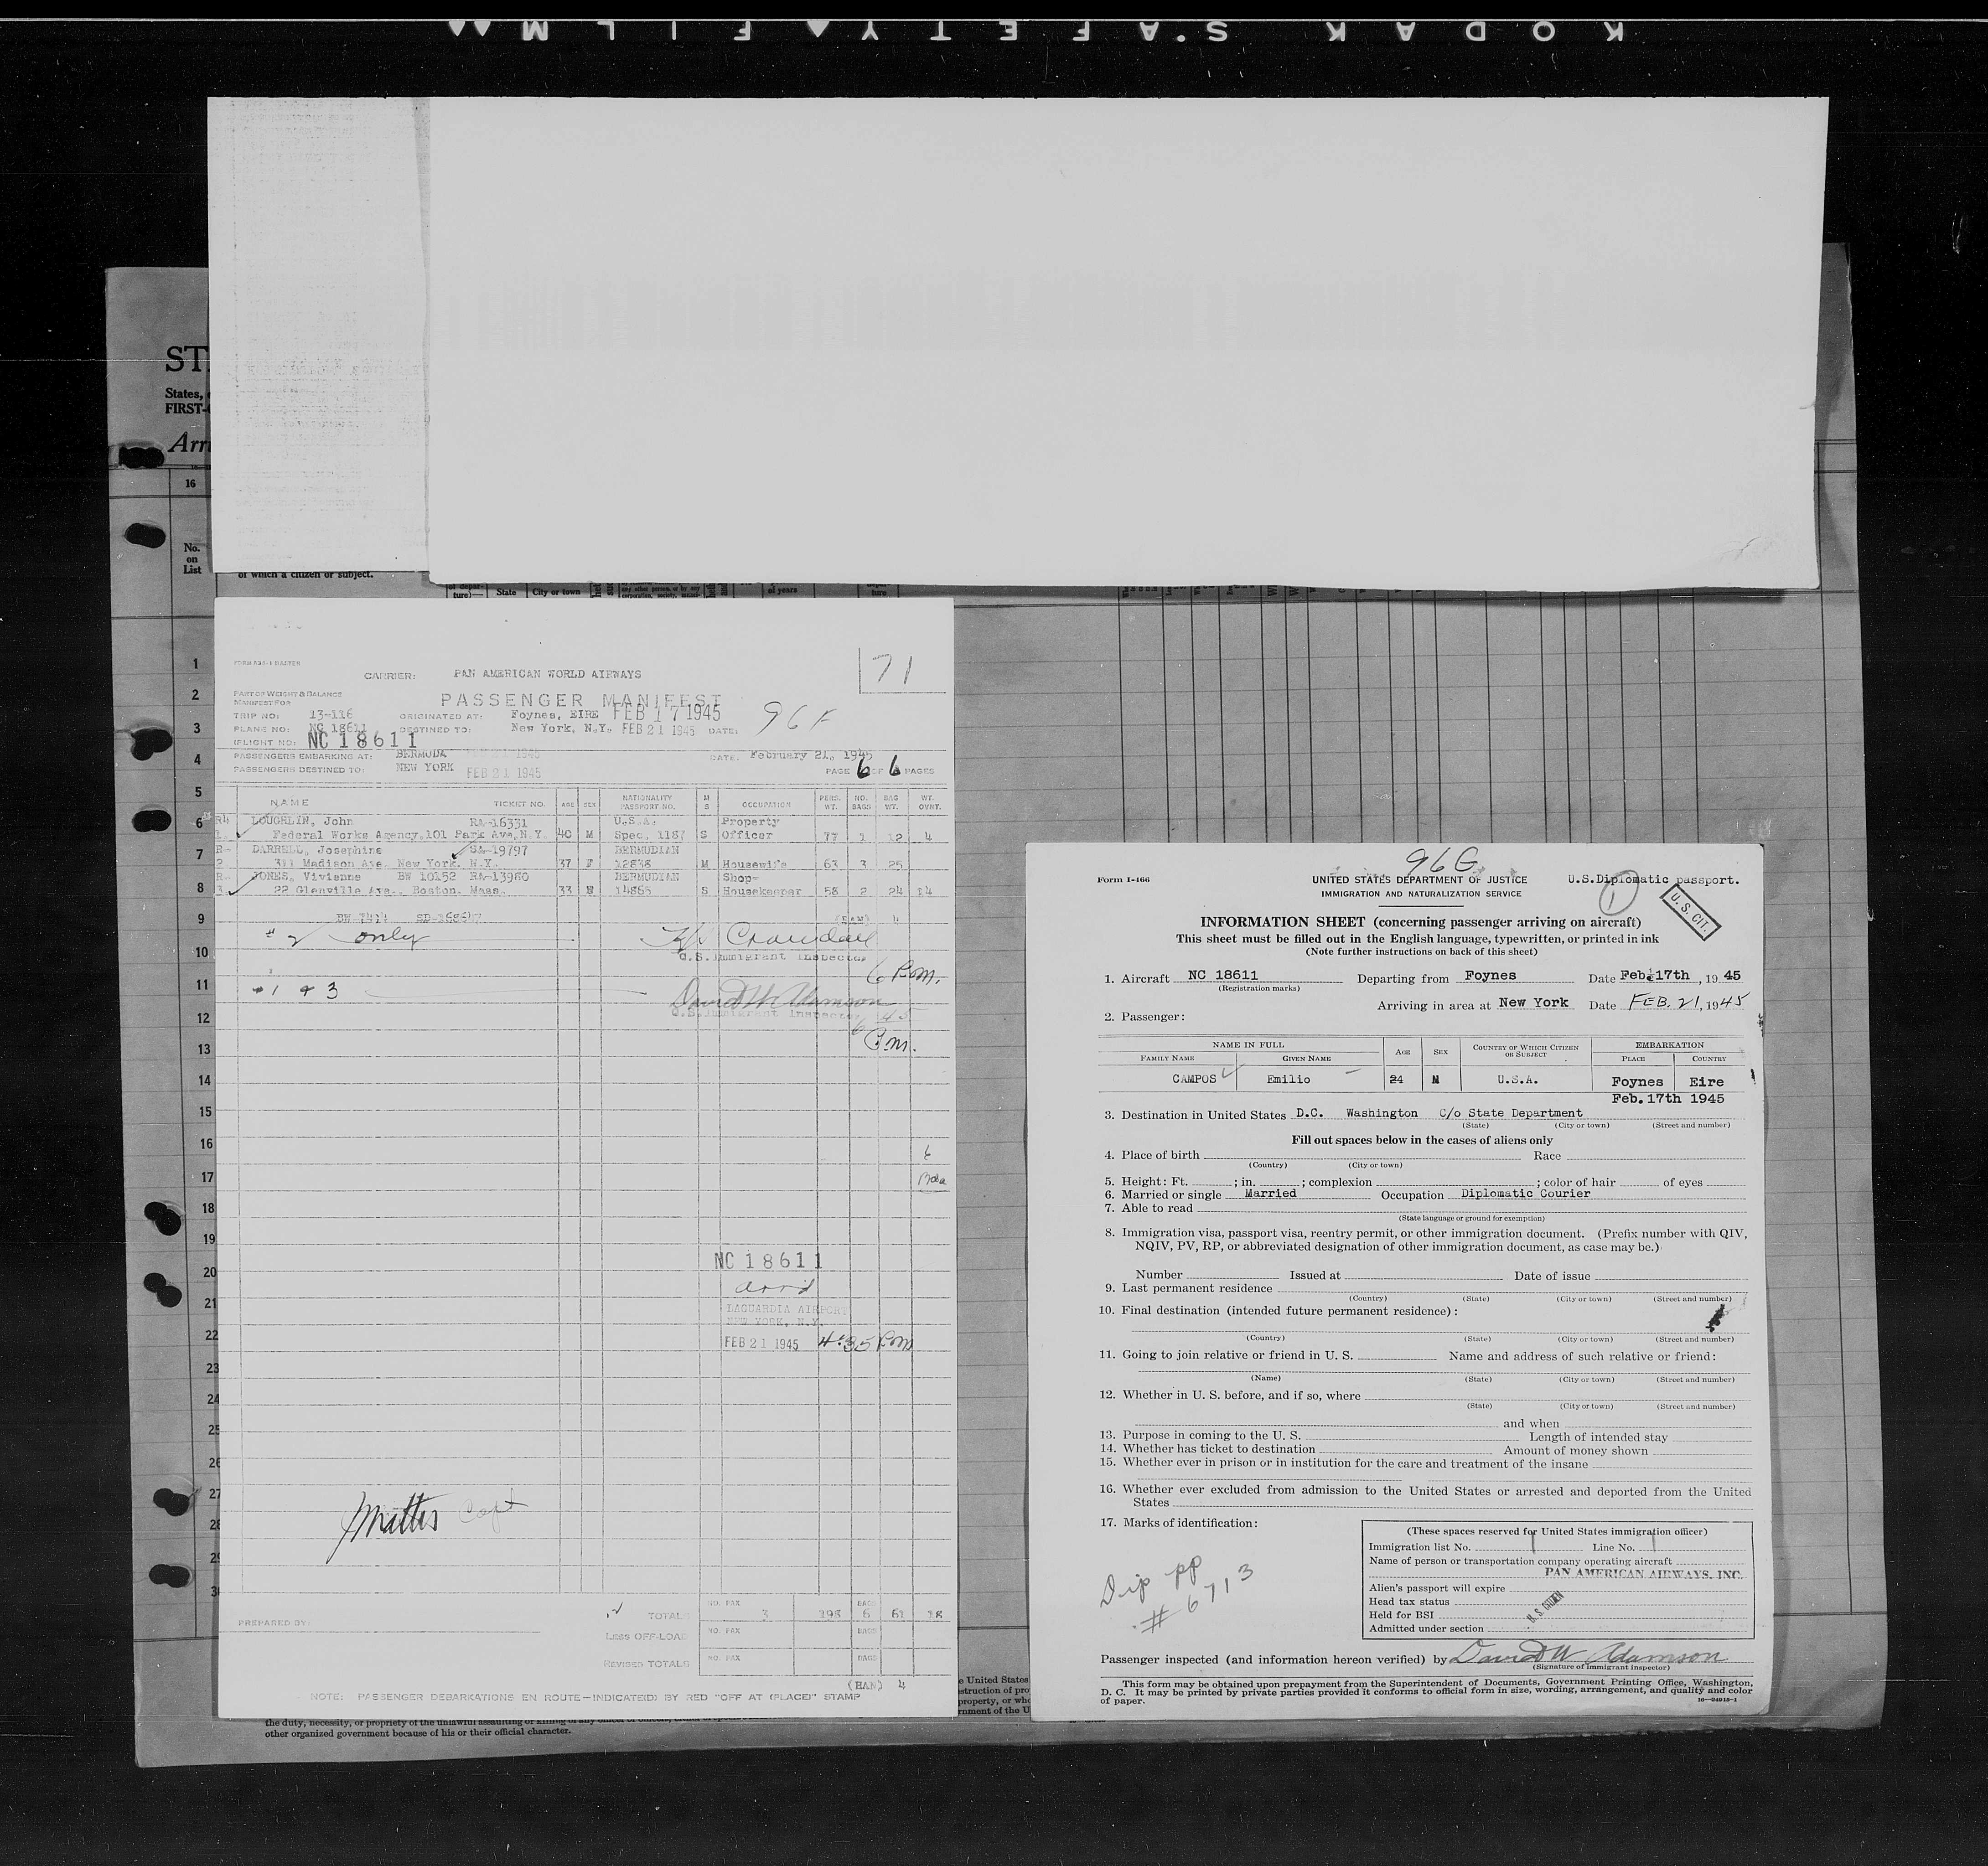 KODAK SAFETY FILM
ST
States,
FIRST-
Arri
16
No.
on
List
of which a citizen or subject.
ture)—
State
City or town
of years
ture
1
2
3
4
5
6
7
8
9
10
11
12
13
14
15
16
17
18
19
20
21
22
23
24
25
26
27
28
29
CARRIER: PAN AMERICAN WORLD AIRWAYS
71
PART OF WEIGHT & BALANCE
MANIFEST FOR
PASSENGER MANIFEST
TRIP NO: 13-116 ORIGINATED AT: Foynes, EIRE FEB 17 1945 96F
PLANE NO: NC 18611 DESTINED TO: New York, N.Y. FEB 21 1945 DATE:
FLIGHT NO: NC 18611
PASSENGERS EMBARKING AT: BERMUDA DATE: February 21, 1945
PASSENGERS DESTINED TO: NEW YORK FEB 21 1945 PAGE 6 OF 6 PAGES
NAME TICKET NO. AGE SEX NATIONALITY PASSPORT NO. M S OCCUPATION PERS. WT. NO. BAGS BAG WT. WT. OVNT.
LOUGHLIN, John RA-16331 U.S.A. Property
1. Federal Works Agency, 101 Park Ave, N.Y. 40 M Spec. 1187 S Officer 77 1 12 4
DARRELL, Josephine SA-19797 BERMUDIAN
2. 311 Madison Ave. New York. N.Y. 37 F 12838 M Housewife 63 3 25
JONES, Vivienne BW 10152 RA-13980 BERMUDIAN Shop-
3. 22 Glenville Ave., Boston. Mass. 33 14865 S Housekeeper 58 2 24 14
(HAM) 4
# 2 only Crandall
U.S. Immigrant Inspector
6 P.m.
#1 & 3 David W. Adamson
U.S. Immigrant Inspector
6 45
P.m.
6
Bda
NC 18611
arr'd
LAGUARDIA AIRPORT
NEW YORK, N.Y.
FEB 21 1945 4:35 Pm
Mattis Capt
PREPARED BY:
NO. PAX BAGS
TOTALS 3 198 6 61 18
LESS OFF-LOAD NO. PAX BAGS
REVISED TOTALS NO. PAX BAGS
(HAM) 4
NOTE: PASSENGER DEBARKATIONS EN ROUTE—INDICATE(D) BY RED "OFF AT (PLACE)" STAMP
other organized government because of his or their official character.
96G
Form I-466
UNITED STATES DEPARTMENT OF JUSTICE
U.S.Diplomatic passport.
IMMIGRATION AND NATURALIZATION SERVICE
1
U. S. CIT.
INFORMATION SHEET (concerning passenger arriving on aircraft)
This sheet must be filled out in the English language, typewritten, or printed in ink
(Note further instructions on back of this sheet)
1. Aircraft NC 18611 Departing from Foynes Date Feb. 17th, 1945
(Registration marks)
Arriving in area at New York Date FEB. 21, 1945
2. Passenger:
NAME IN FULL AGE SEX COUNTRY OF WHICH CITIZEN OR SUBJECT EMBARKATION
FAMILY NAME GIVEN NAME PLACE COUNTRY
CAMPOS Emilio 24 M U.S.A. Foynes Eire
Feb. 17th 1945
3. Destination in United States D.C. Washington C/o State Department
(State) (City or town) (Street and number)
Fill out spaces below in the cases of aliens only
4. Place of birth Race
(Country) (City or town)
5. Height: Ft. ; in. ; complexion ; color of hair of eyes
6. Married or single Married Occupation Diplomatic Courier
7. Able to read
(State language or ground for exemption)
8. Immigration visa, passport visa, reentry permit, or other immigration document. (Prefix number with QIV,
NQIV, PV, RP, or abbreviated designation of other immigration document, as case may be.)
Number Issued at Date of issue
9. Last permanent residence
(Country) (State) (City or town) (Street and number)
10. Final destination (intended future permanent residence):
(Country) (State) (City or town) (Street and number)
11. Going to join relative or friend in U. S. Name and address of such relative or friend:
(Name) (State) (City or town) (Street and number)
12. Whether in U. S. before, and if so, where
(State) (City or town) (Street and number)
and when
13. Purpose in coming to the U. S. Length of intended stay
14. Whether has ticket to destination Amount of money shown
15. Whether ever in prison or in institution for the care and treatment of the insane
16. Whether ever excluded from admission to the United States or arrested and deported from the United
States
17. Marks of identification:
Dip pp
# 6713
(These spaces reserved for United States immigration officer)
Immigration list No. 1 Line No. 1
Name of person or transportation company operating aircraft
PAN AMERICAN AIRWAYS, INC.
Alien's passport will expire
Head tax status
Held for BSI
Admitted under section
Passenger inspected (and information hereon verified) by David W Adamson
(Signature of immigrant inspector)
This form may be obtained upon prepayment from the Superintendent of Documents, Government Printing Office, Washington,
D. C. It may be printed by private parties provided it conforms to official form in size, wording, arrangement, and quality and color
of paper.
16—24915-1